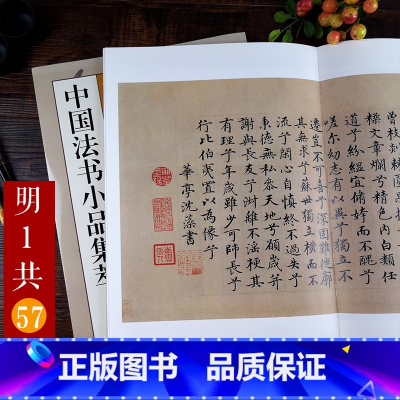 中国法书小品集
明
1
共
57
曾枝剡棘圓果
糅文章爛兮精色內白類任
道兮紛縕宜脩姱而不醜兮
嗟尔幼志有以異兮獨立不
遷豈不可喜兮深固難徙廓
其無求兮蘇世獨立橫而不
流兮閉心自慎終不過失兮
秉德無私叅天地兮願歲并
謝與長友兮淑離不淫梗其
有理兮年歲雖少可師長兮
行比伯夷置以為像兮
華亭沈藻書